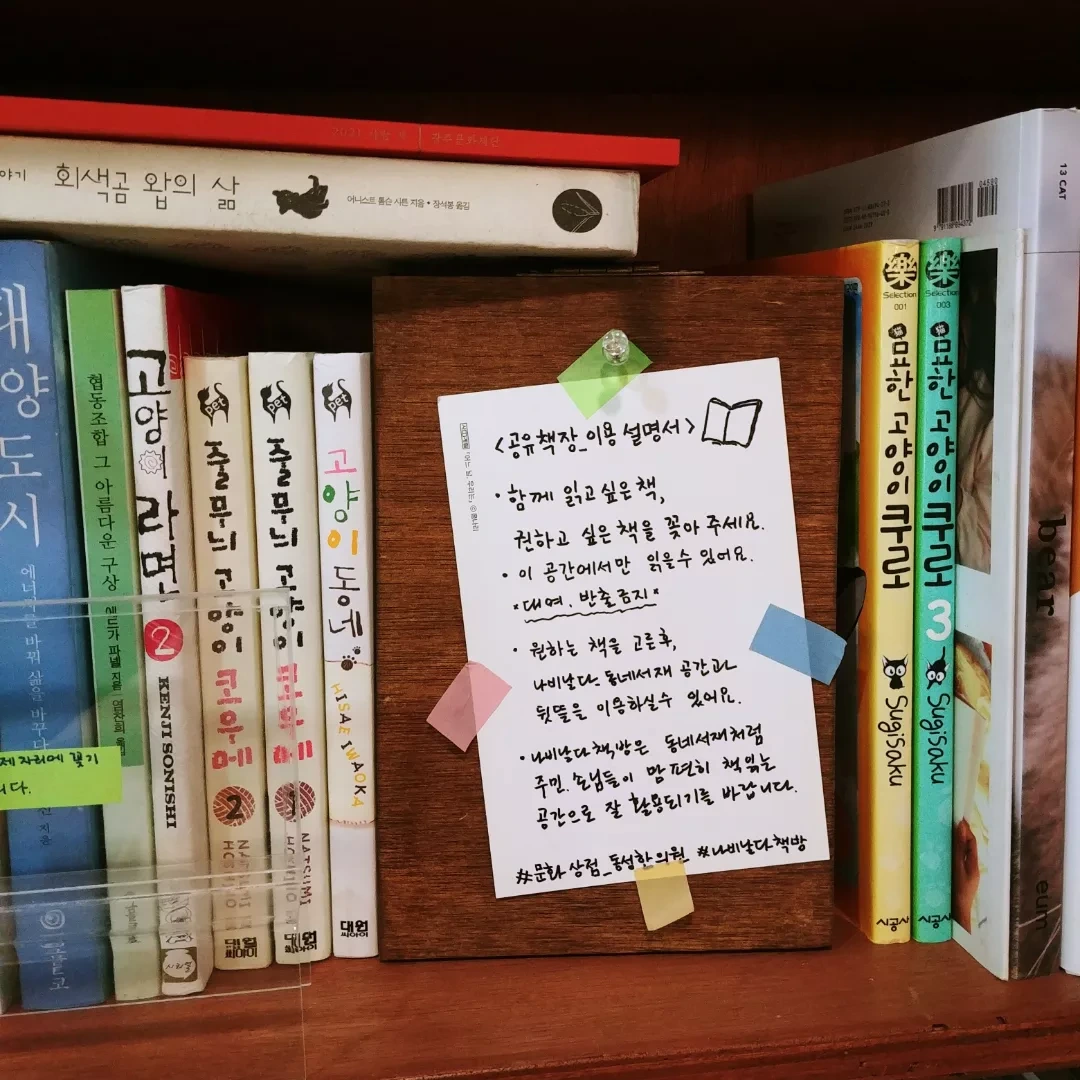 2021
회색곰 왑의 삶
어니스트 톰슨 시튼 지음 • 장석봉 옮김
태양 도시
에너지를 바꿔 삶을 바꾸다
협동조합 그 아름다운 구상
에드가 파넬 지음
고양이 라면
2
KENJI SONISHI
pet
줄무늬 고양이 코우메
2
pet
줄무늬 고양이 코우메
1
NATSUMI
pet
고양이 동네
HISAE IWAOKA
대원
씨아이
대원
씨아이
대원
씨아이
제자리에 꽂기
니다.
<공유책장_이용 설명서>
• 함께 읽고 싶은 책,
권하고 싶은 책을 꽂아 주세요.
• 이 공간에서만 읽을수 있어요.
*대여, 반출금지*
• 원하는 책을 고른후,
나비날다_동네서재 공간과
뒷뜰을 이용하실수 있어요.
• 나비날다책방은 동네서재처럼
주민, 손님들이 맘 편히 책읽는
공간으로 잘 활용되기를 바랍니다.
#문화상점_동성한의원 #나비날다책방
樂
Selection
001
묘한 고양이 쿠로
SugiSaku
시공사
樂
Selection
003
묘한 고양이 쿠로
3
SugiSaku
시공사
13 CAT
bear
eum